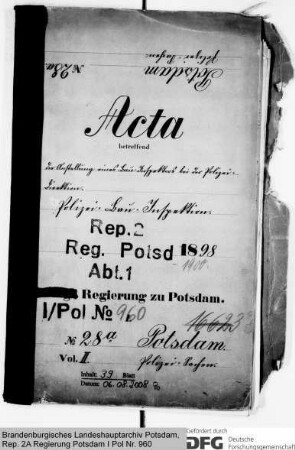 Potsdam
Polizei-Sachen.
№ 28a
Acta
betreffend
die Anstellung eines Bau-Inspektors bei der Polizei-
direktion.
Polizei-Bau-Inspektion.
Rep.2
Reg. Potsd 1898
1901.
Abt.1
Regierung zu Potsdam.
I/Pol № 960
16623
№ 28a Potsdam
Vol. II Polizei-Sachen.
Inhalt: 39 Blatt
Datum: 06.08.2008
Brandenburgisches Landeshauptarchiv Potsdam,
Rep. 2A Regierung Potsdam I Pol Nr. 960
Gefördert durch
DFG Deutsche
Forschungsgemeinschaft